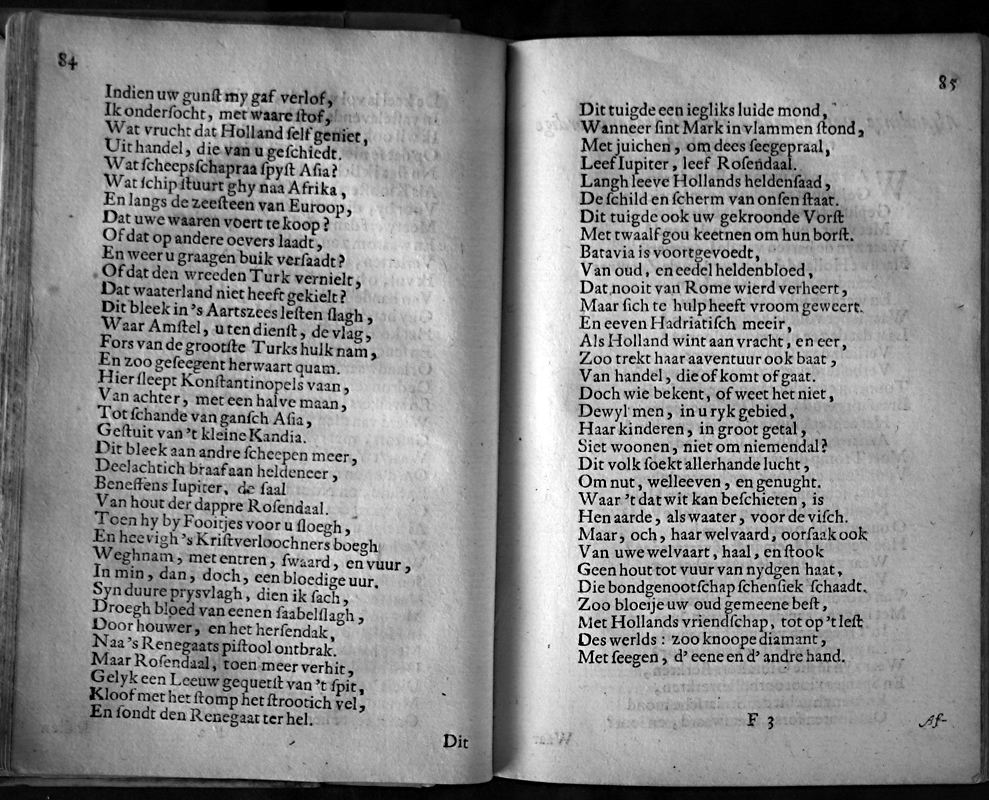 84
Indien uw gunſt my gaf verlof,
Ik onderſocht, met waare ſtof,
Wat vrucht dat Holland ſelf geniet,
Uit handel, die van u geſchiedt.
Wat ſcheepsſchapraa ſpyſt Aſia?
Wat ſchip ſtuurt ghy naa Afrika,
En langs de zeeſteen van Euroop,
Dat uwe waaren voert te koop?
Of dat op andere oevers laadt,
En weer u graagen buik verſaadt?
Of dat den wreeden Turk vernielt,
Dat waaterland niet heeft gekielt?
Dit bleek in 's Aartszees leſten ſlagh,
Waar Amſtel, u ten dienſt, de vlag,
Fors van de grootſte Turks hulk nam,
En zoo geſeegent herwaart quam.
Hier ſleept Konſtantinopels vaan,
Van achter, met een halve maan,
Tot ſchande van ganſch Aſia,
Geſtuit van 't kleine Kandia.
Dit bleek aan andre ſcheepen meer,
Deelachtich braaf aan heldeneer,
Beneffens Iupiter, de ſaal
Van hout der dappre Roſendaal.
Toen hy by Fooitjes voor u ſloegh,
En heevigh 's Kriſtverloochners boegh
Weghnam, met entren, ſwaard, en vuur,
In min, dan, doch, een bloedige uur.
Syn duure prysvlagh, dien ik ſach,
Droegh bloed van eenen ſaabelſlagh,
Door houwer, en het herſendak,
Naa 's Renegaats piſtool ontbrak.
Maar Roſendaal, toen meer verhit,
Gelyk een Leeuw gequetſt van 't ſpit,
Kloof met het ſtomp het ſtrootich vel,
En ſondt den Renegaat ter hel.
Dit
85
Dit tuigde een iegliks luide mond,
Wanneer ſint Mark in vlammen ſtond,
Met juichen, om dees ſeegepraal,
Leef Iupiter, leef Roſendaal.
Langh leeve Hollands heldenſaad,
De ſchild en ſcherm van onſen ſtaat.
Dit tuigde ook uw gekroonde Vorſt
Met twaalf gou keetnen om hun borſt.
Batavia is voortgevoedt,
Van oud, en eedel heldenbloed,
Dat nooit van Rome wierd verheert,
Maar ſich te hulp heeft vroom geweert.
En eeven Hadriatiſch meeir,
Als Holland wint aan vracht, en eer,
Zoo trekt haar aaventuur ook baat,
Van handel, die of komt of gaat.
Doch wie bekent, of weet het niet,
Dewyl men, in u ryk gebied,
Haar kinderen, in groot getal,
Siet woonen, niet om niemendal?
Dit volk ſoekt allerhande lucht,
Om nut, welleeven, en genught.
Waar 't dat wit kan beſchieten, is
Hen aarde, als waater, voor de viſch.
Maar, och, haar welvaard, oorſaak ook
Van uwe welvaart, haal, en ſtook
Geen hout tot vuur van nydgen haat,
Die bondgenootſchap ſchenſiek ſchaadt.
Zoo bloeije uw oud gemeene beſt,
Met Hollands vriendſchap, tot op 't leſt
Des werlds: zoo knoope diamant,
Met ſeegen, d' eene en d' andre hand.
F 3
Af-